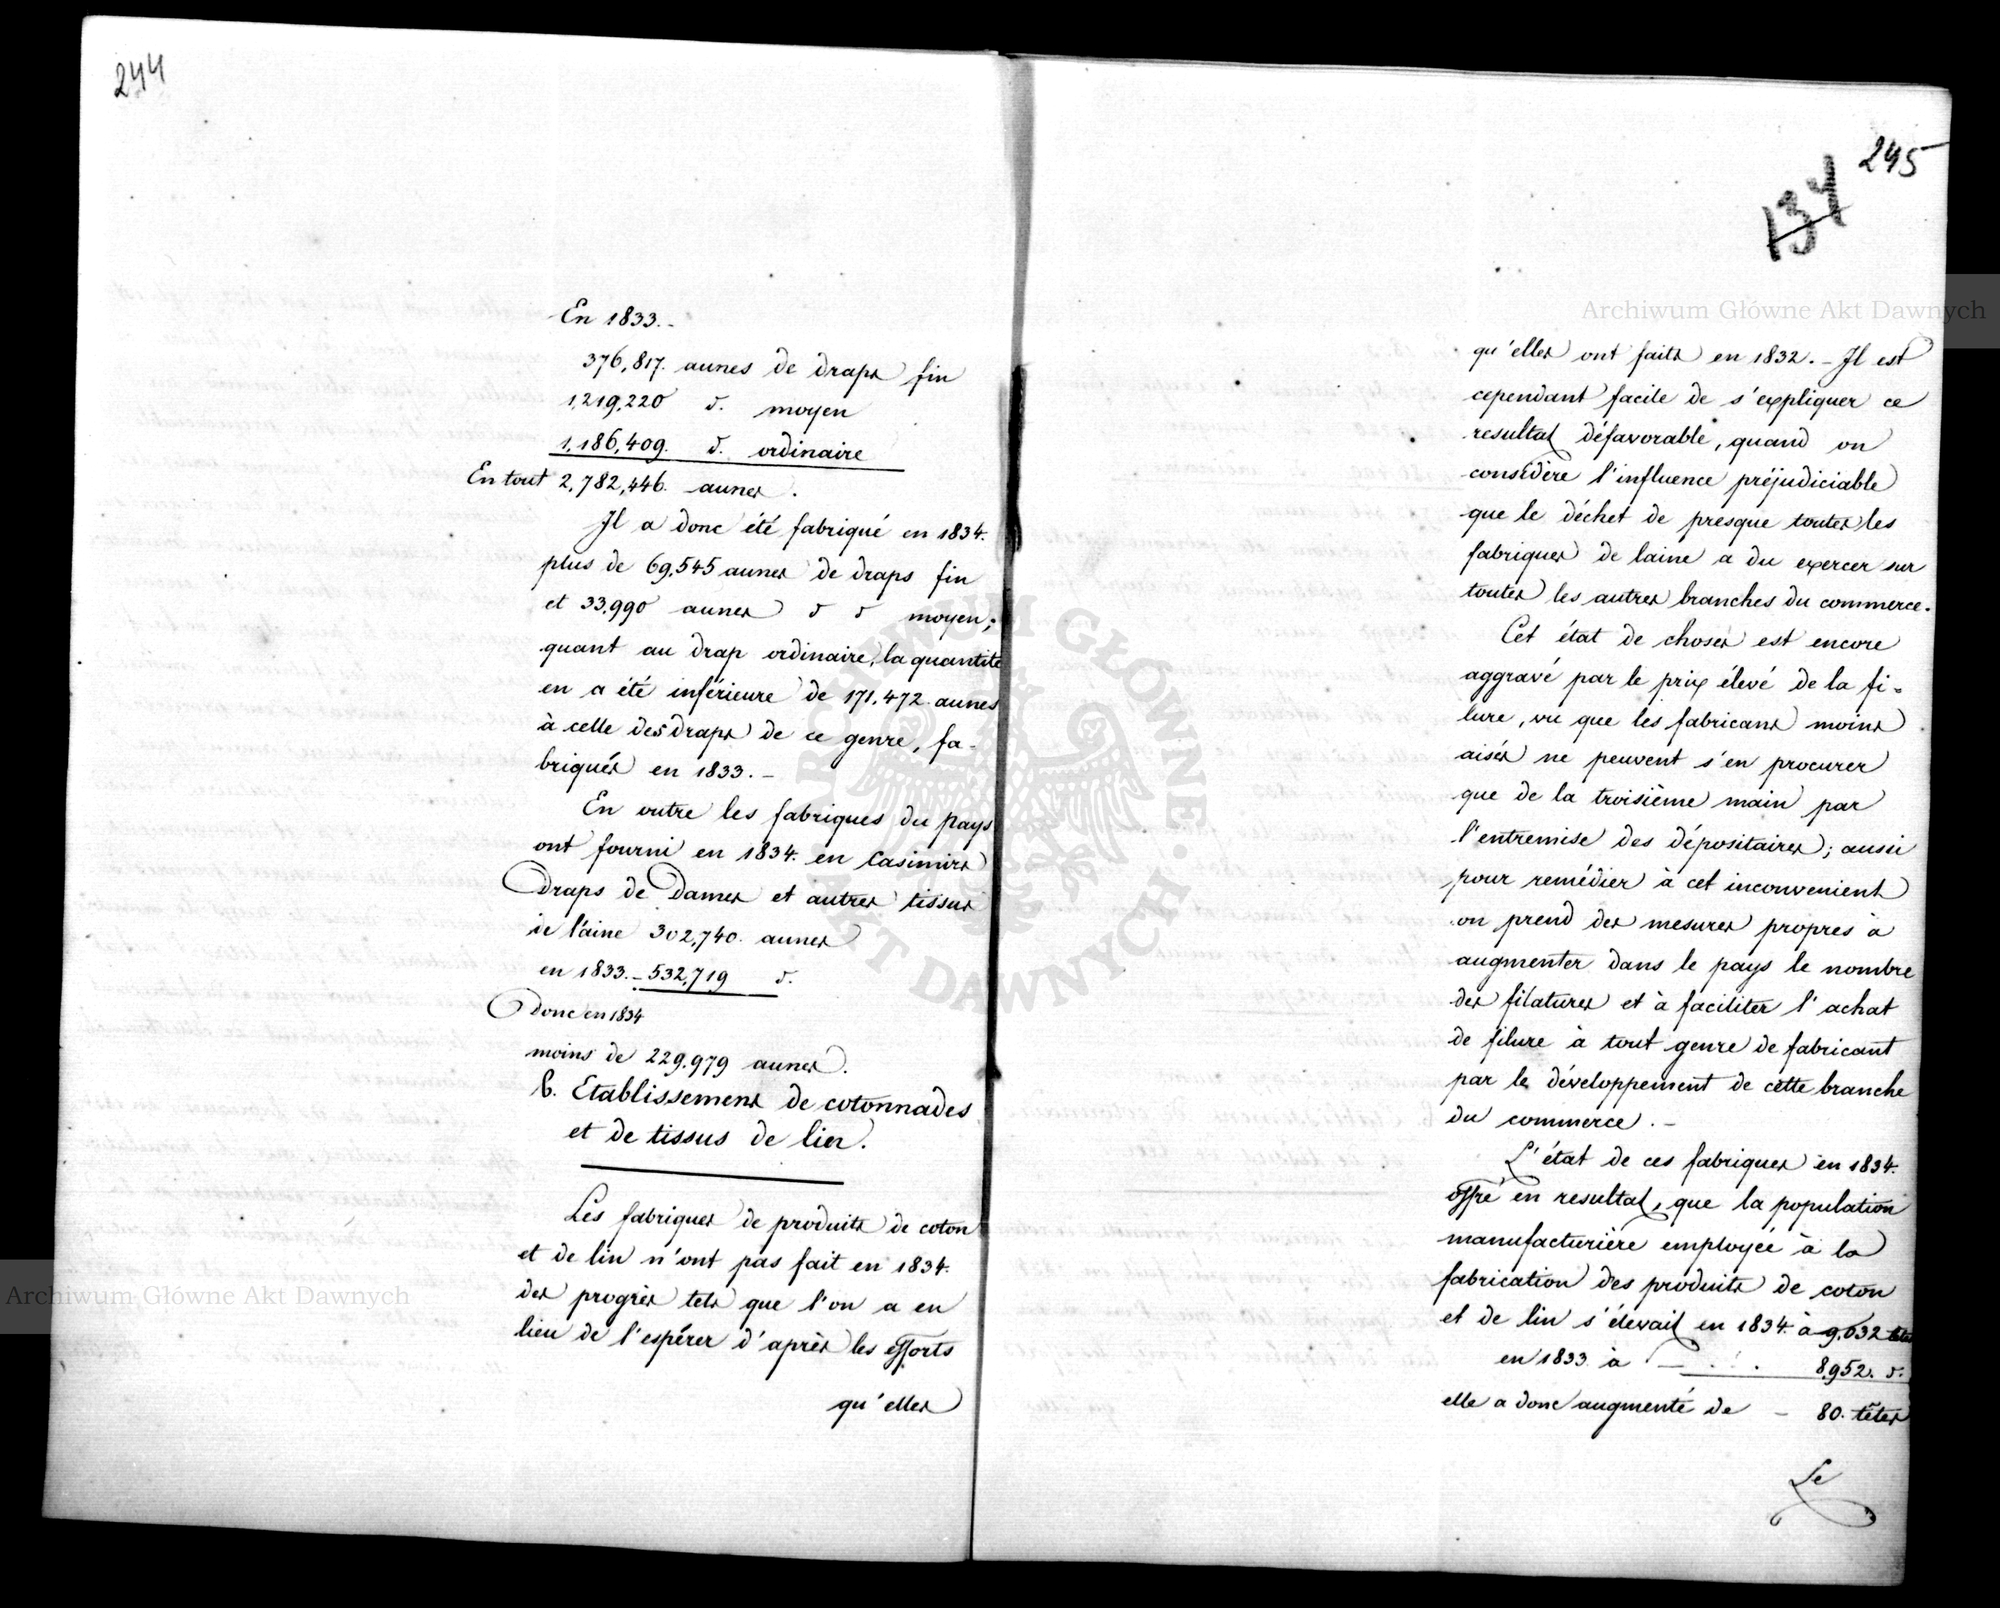 244
En 1833.-
376,817. aunes de draps fin
1,219,220 d. moyen
1,186,409. d. ordinaire
En tout 2,782,446. aunes.
Il a donc été fabriqué en 1834.
plus de 69,545 aunes de draps fin
et 33,990 aunes d d moyen;
quant au drap ordinaire, la quantité
en a été inférieure de 171,472 aunes
à celle des draps de ce genre, fa-
briqués en 1833.-
En outre les fabriques du pays
ont fourni en 1834. en Casimirs
Draps de Dames et autres tissus
de l'aine 302,740. aunes
en 1833.- 532,719 d.
Donc en 1834
moins de 229,979 aunes.
b. Etablissemens de cotonnades
et de tissus de lin.
Les fabriques de produits de coton
et de lin n'ont pas fait en 1834.
des progrès tels que l'on a eu
lieu de l'espérer d'après les efforts
qu'elles
245
134
qu'elles ont faits en 1832.- Il est
cependant facile de s'expliquer ce
resultat défavorable, quand on
considère l'influence préjudiciable
que le déchet de presque toutes les
fabriques de laine a du exercer sur
toutes les autres branches du commerce.
Cet état de choses est encore
aggravé par le prix élevé de la fi-
lure, vu que les fabricans moins
aisés ne peuvent s'en procurer
que de la troisième main par
l'entremise des dépositaires; aussi
pour remédier à cet inconvenient
on prend des mesures propres à
augmenter dans le pays le nombre
des filatures et à faciliter l'achat
de filure à tout genre de fabricant
par le développement de cette branche
du commerce.-
L'état de ces fabriques en 1834.
offre en resultat, que la population
manufacturière employée à la
fabrication des produits de coton
et de lin s'élevait en 1834. à 9,032 têtes
en 1833. à 8,952. d.
elle a donc augmenté de - 80. têtes
Le
Archiwum Główne Akt Dawnych
Archiwum Główne Akt Dawnych
ARCHIWUM GŁÓWNE AKT DAWNYCH